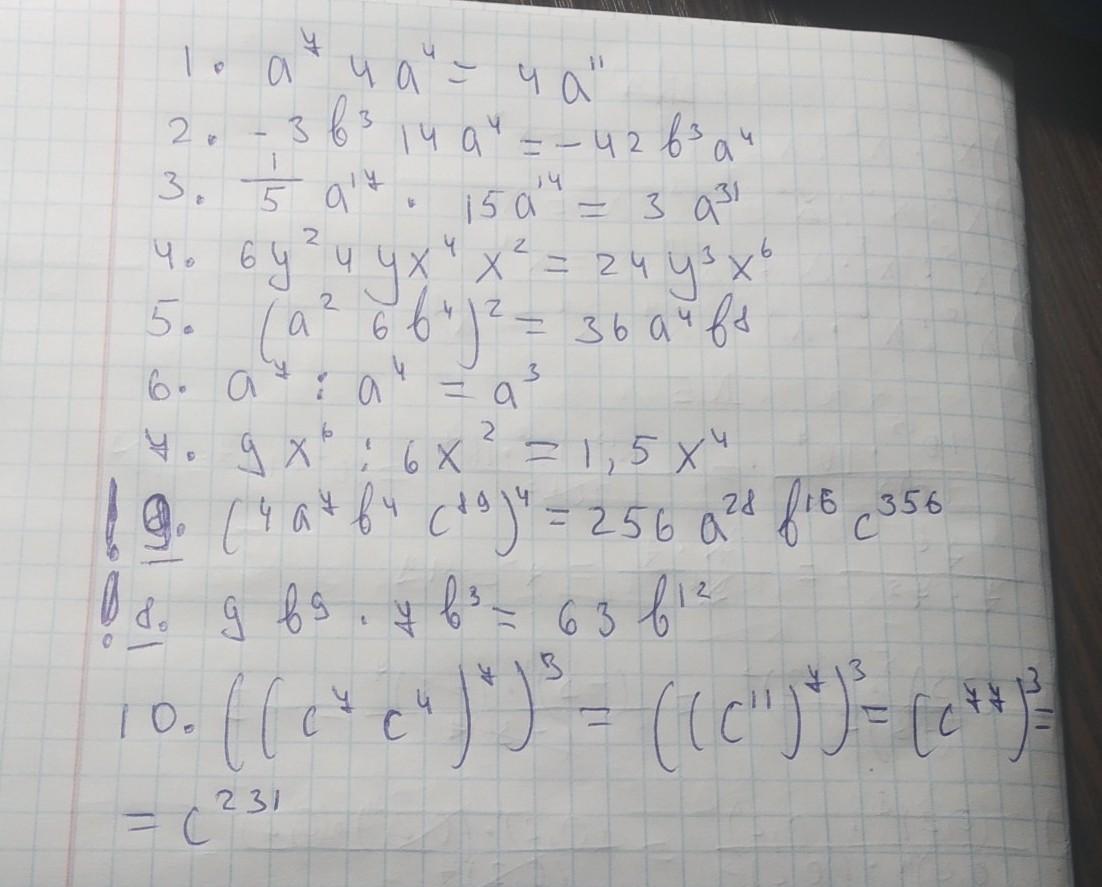 1. a⁷ 4a⁴ = 4a¹¹
2. -3b³ 14a⁴ = -42b³a⁴
3. 1/5 a¹⁷ · 15a¹⁴ = 3a³¹
4. 6y² 4yx⁴ x² = 24y³x⁶
5. (a² 6b⁴)² = 36a⁴b⁸
6. a⁷ : a⁴ = a³
7. 9x⁶ : 6x² = 1,5x⁴
! 9. (4a⁷b⁴c⁸⁹)⁴ = 256a²⁸b¹⁶c³⁵⁶
! 8. 9b⁹ · 7b³ = 63b¹²
10. ((c⁷c⁴)⁷)³ = ((c¹¹)⁷)³ = (c⁷⁷)³ =
= c²³¹